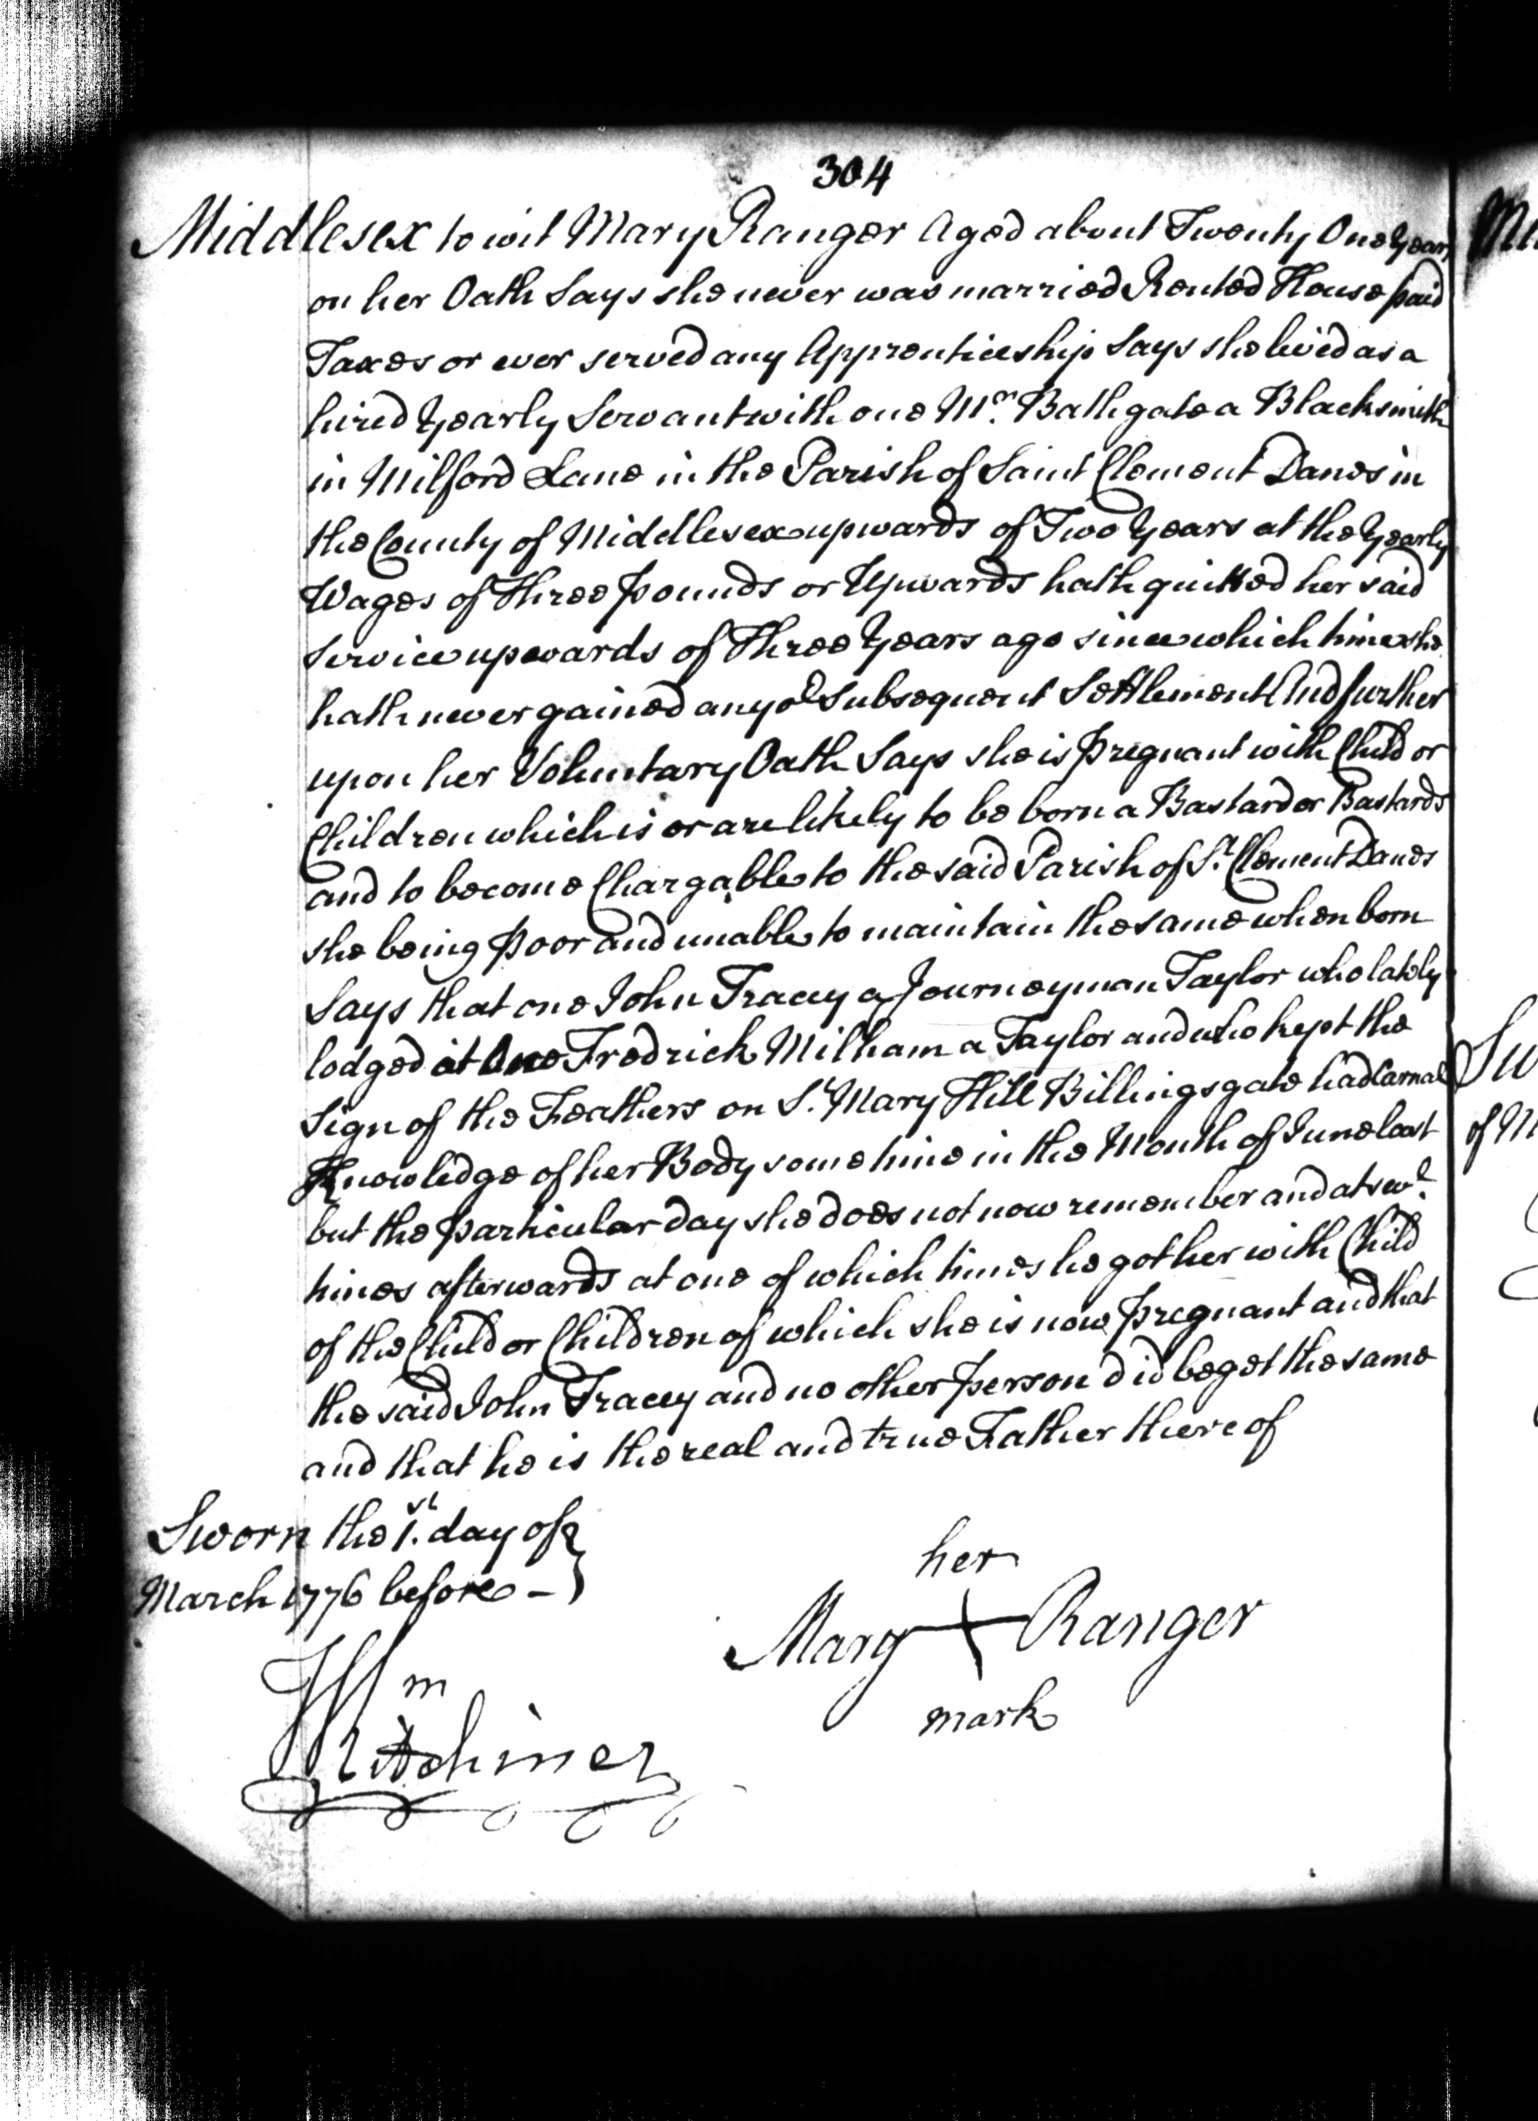 304
Middlesex to wit Mary Ranger Aged about Twenty One Years
on her Oath Says she never was married Rented House paid
Taxes or ever served any Apprenticeship Says she lived as a
hired Yearly Servant with one Mr. Bathgate a Blacksmith
in Milford Lane in the Parish of Saint Clement Danes in
the County of Middlesex upwards of Two Years at the Yearly
Wages of Three Pounds or Upwards hath quitted her said
Service upwards of Three Years ago since which time she
hath never gained any Subsequent Settlement And further
upon her Voluntary Oath Says she is Pregnant with Child or
Children which is or are likely to be born a Bastard or Bastards
and to become Chargable to the said Parish of St. Clement Danes
she being Poor and unable to maintain the same when born
Says that one John Tracey a Journeyman Taylor who lately
lodged at One Fredrick Milham a Taylor and who kept the
Sign of the Feathers on St. Mary Hill Billingsgate had Carnal
Knowledge of her Body some time in the Month of June last
but the particular day she does not now remember and at sevl.
times afterwards at one of which times he got her with Child
of the Child or Children of which she is now Pregnant and that
the said John Tracey and no other Person did beget the same
and that he is the real and true Father there of
Sworn the 1st. day of
March 1776 before
her
Mary + Ranger
mark
Wm
Kitchiner